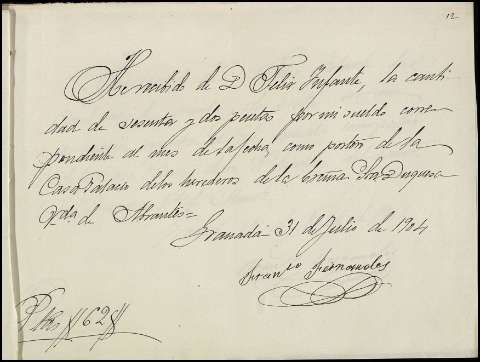 12
He recibido de D Felix Infante, la canti
dad de sesenta y dos pesetas por mi sueldo corres
pondiente al mes de la fecha, como portero de la
Casa Palacio de los herederos de la Excma Sra Duquesa
Vda de Abrantes=
Granada 31 de Julio de 1904
Fernandez
Ptas #62#